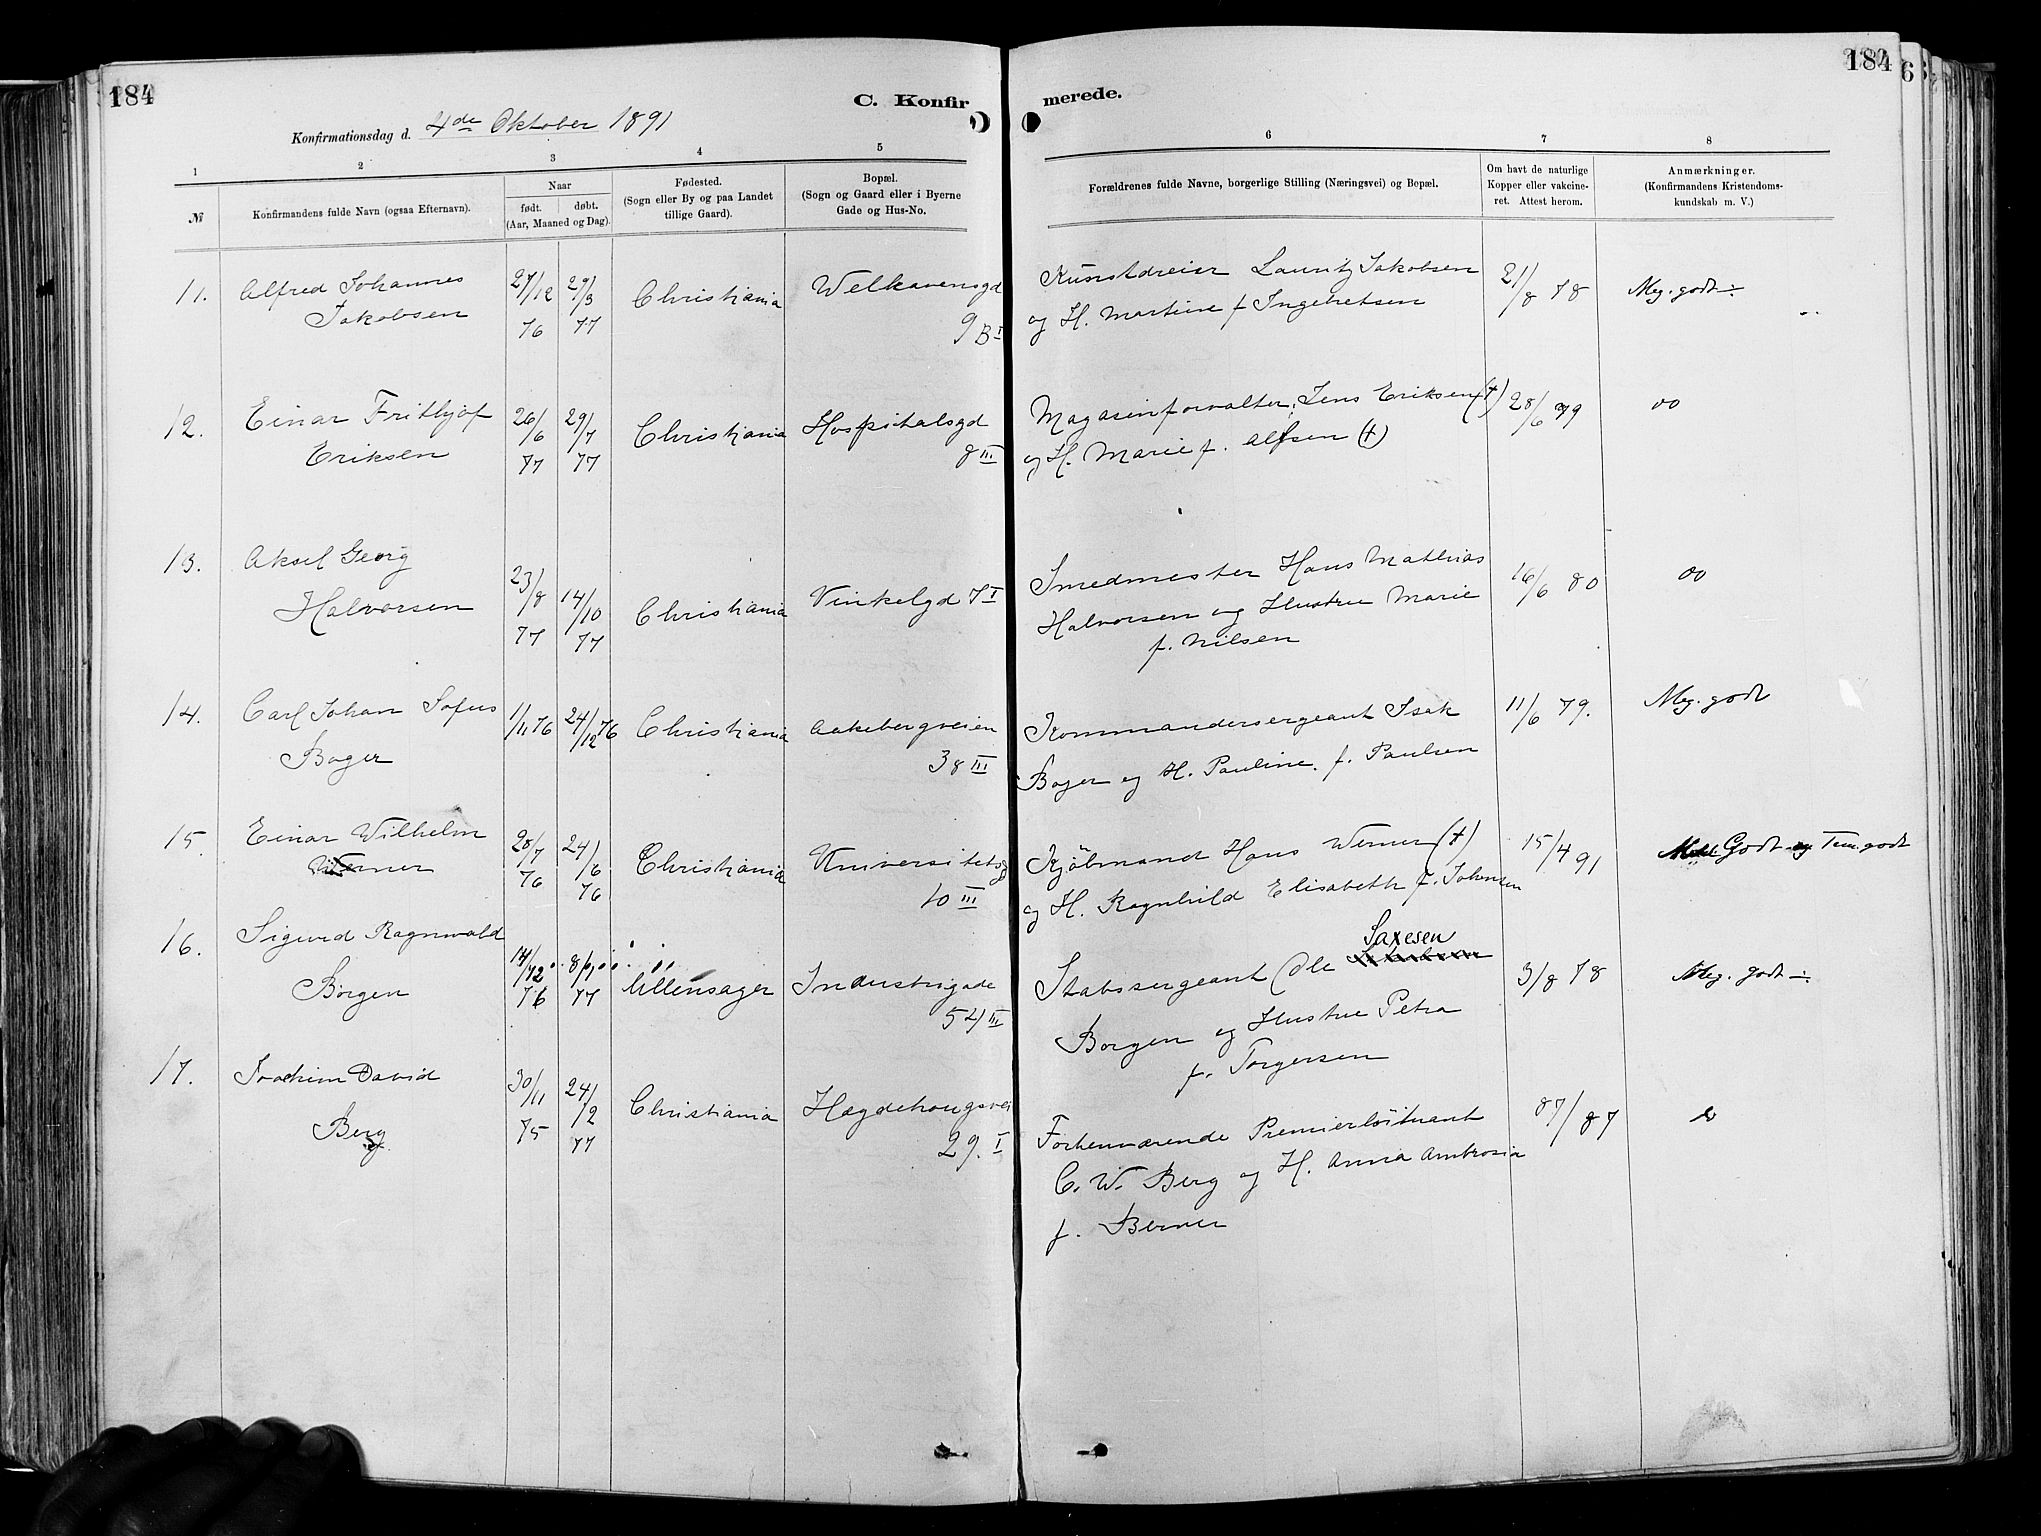 184
184
6
C. Konfir
merede.
Konfirmationsdag d. 4de Oktober 1891
1 2 3 4 5
6 7 8
№
Konfirmandens fulde Navn (ogsaa Efternavn).
Naar
født. døbt.
(Aar, Maaned og Dag).
Fødested.
(Sogn eller By og paa Landet
tillige Gaard).
Bopæl.
(Sogn og Gaard eller i Byerne
Gade og Hus-No.
Forældrenes fulde Navne, borgerlige Stilling (Næringsvei) og Bopæl.
Om havt de naturlige
Kopper eller vakcine-
ret. Attest herom.
Anmærkninger.
(Konfirmandens Kristendoms-
kundskab m. V.)
11. Alfred Johannes
Jakobsen
27/12 76
29/3 77
Christiania
Welhavensgd
9 B I
Kunstdreier Lauritz Jakobsen
og H. Martine f Ingebretsen
21/8 78
Meg. godt ÷
12. Einar Frithjof
Eriksen
26/6 77
29/7 77
Christiania
Hospitalsgd
8 III
Magasinforvalter Jens Eriksen (†)
og H. Marie f. Alfsen (†)
28/6 79
do
13. Aksel Georg
Halvorsen
23/8 77
14/10 77
Christiania
Vinkelgd 7 I
Smedmester Hans Mathias
Halvorsen og Hustru Marie
f. Nilsen
16/6 80
do
14. Carl Johan Sofus
Boger
1/11 76
24/12 76
Christiania
Aakebergveien
38 III
Kommandersergeant Isak
Boger og H. Pauline f. Paulsen
11/6 79.
Meg. godt
15. Einar Wilhelm
Werner
28/7 76
24/6 76
Christiania
Universitetsgd
10 III
Kjøbmand Hans Werner (†)
og H. Ragnhild Elisabeth f. Johnsen
15/4 91
Godt og Tem. godt
16. Sigurd Ragnwald
Borgen
14/12 76
8/ 77
Ullensager
Industrigade
54 III
Saxesen
Stabssergeant Ole
Borgen og Hustru Petra
f. Torgersen
3/8 78
Meg. godt ÷
17. Joachim David
Berg
30/11 75
24/2 77
Christiania
Hægdehougsvei
29. I
Forhenværende Premierløitnant
C. W. Berg og H. Anna Ambrosia
f. Berner
87/87